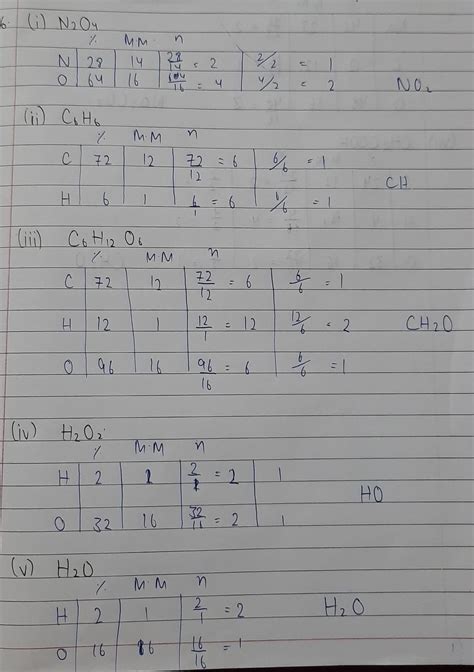 6. (i) N2O4
% M.M n
N 28 14 28/14 = 2 2/2 = 1
O 64 16 64/16 = 4 4/2 = 2 NO2
(ii) C6H6
% M.M n
C 72 12 72/12 = 6 6/6 = 1
CH
H 6 1 6/1 = 6 1/6 = 1
(iii) C6H12O6
% M.M n
C 72 12 72/12 = 6 6/6 = 1
H 12 1 12/1 = 12 12/6 = 2 CH2O
O 96 16 96/16 = 6 6/6 = 1
(iv) H2O2
% M.M n
H 2 1 2/1 = 2 1
HO
O 32 16 32/16 = 2 1
(v) H2O
% M.M n
H 2 1 2/1 = 2 H2O
O 16 16 16/16 = 1